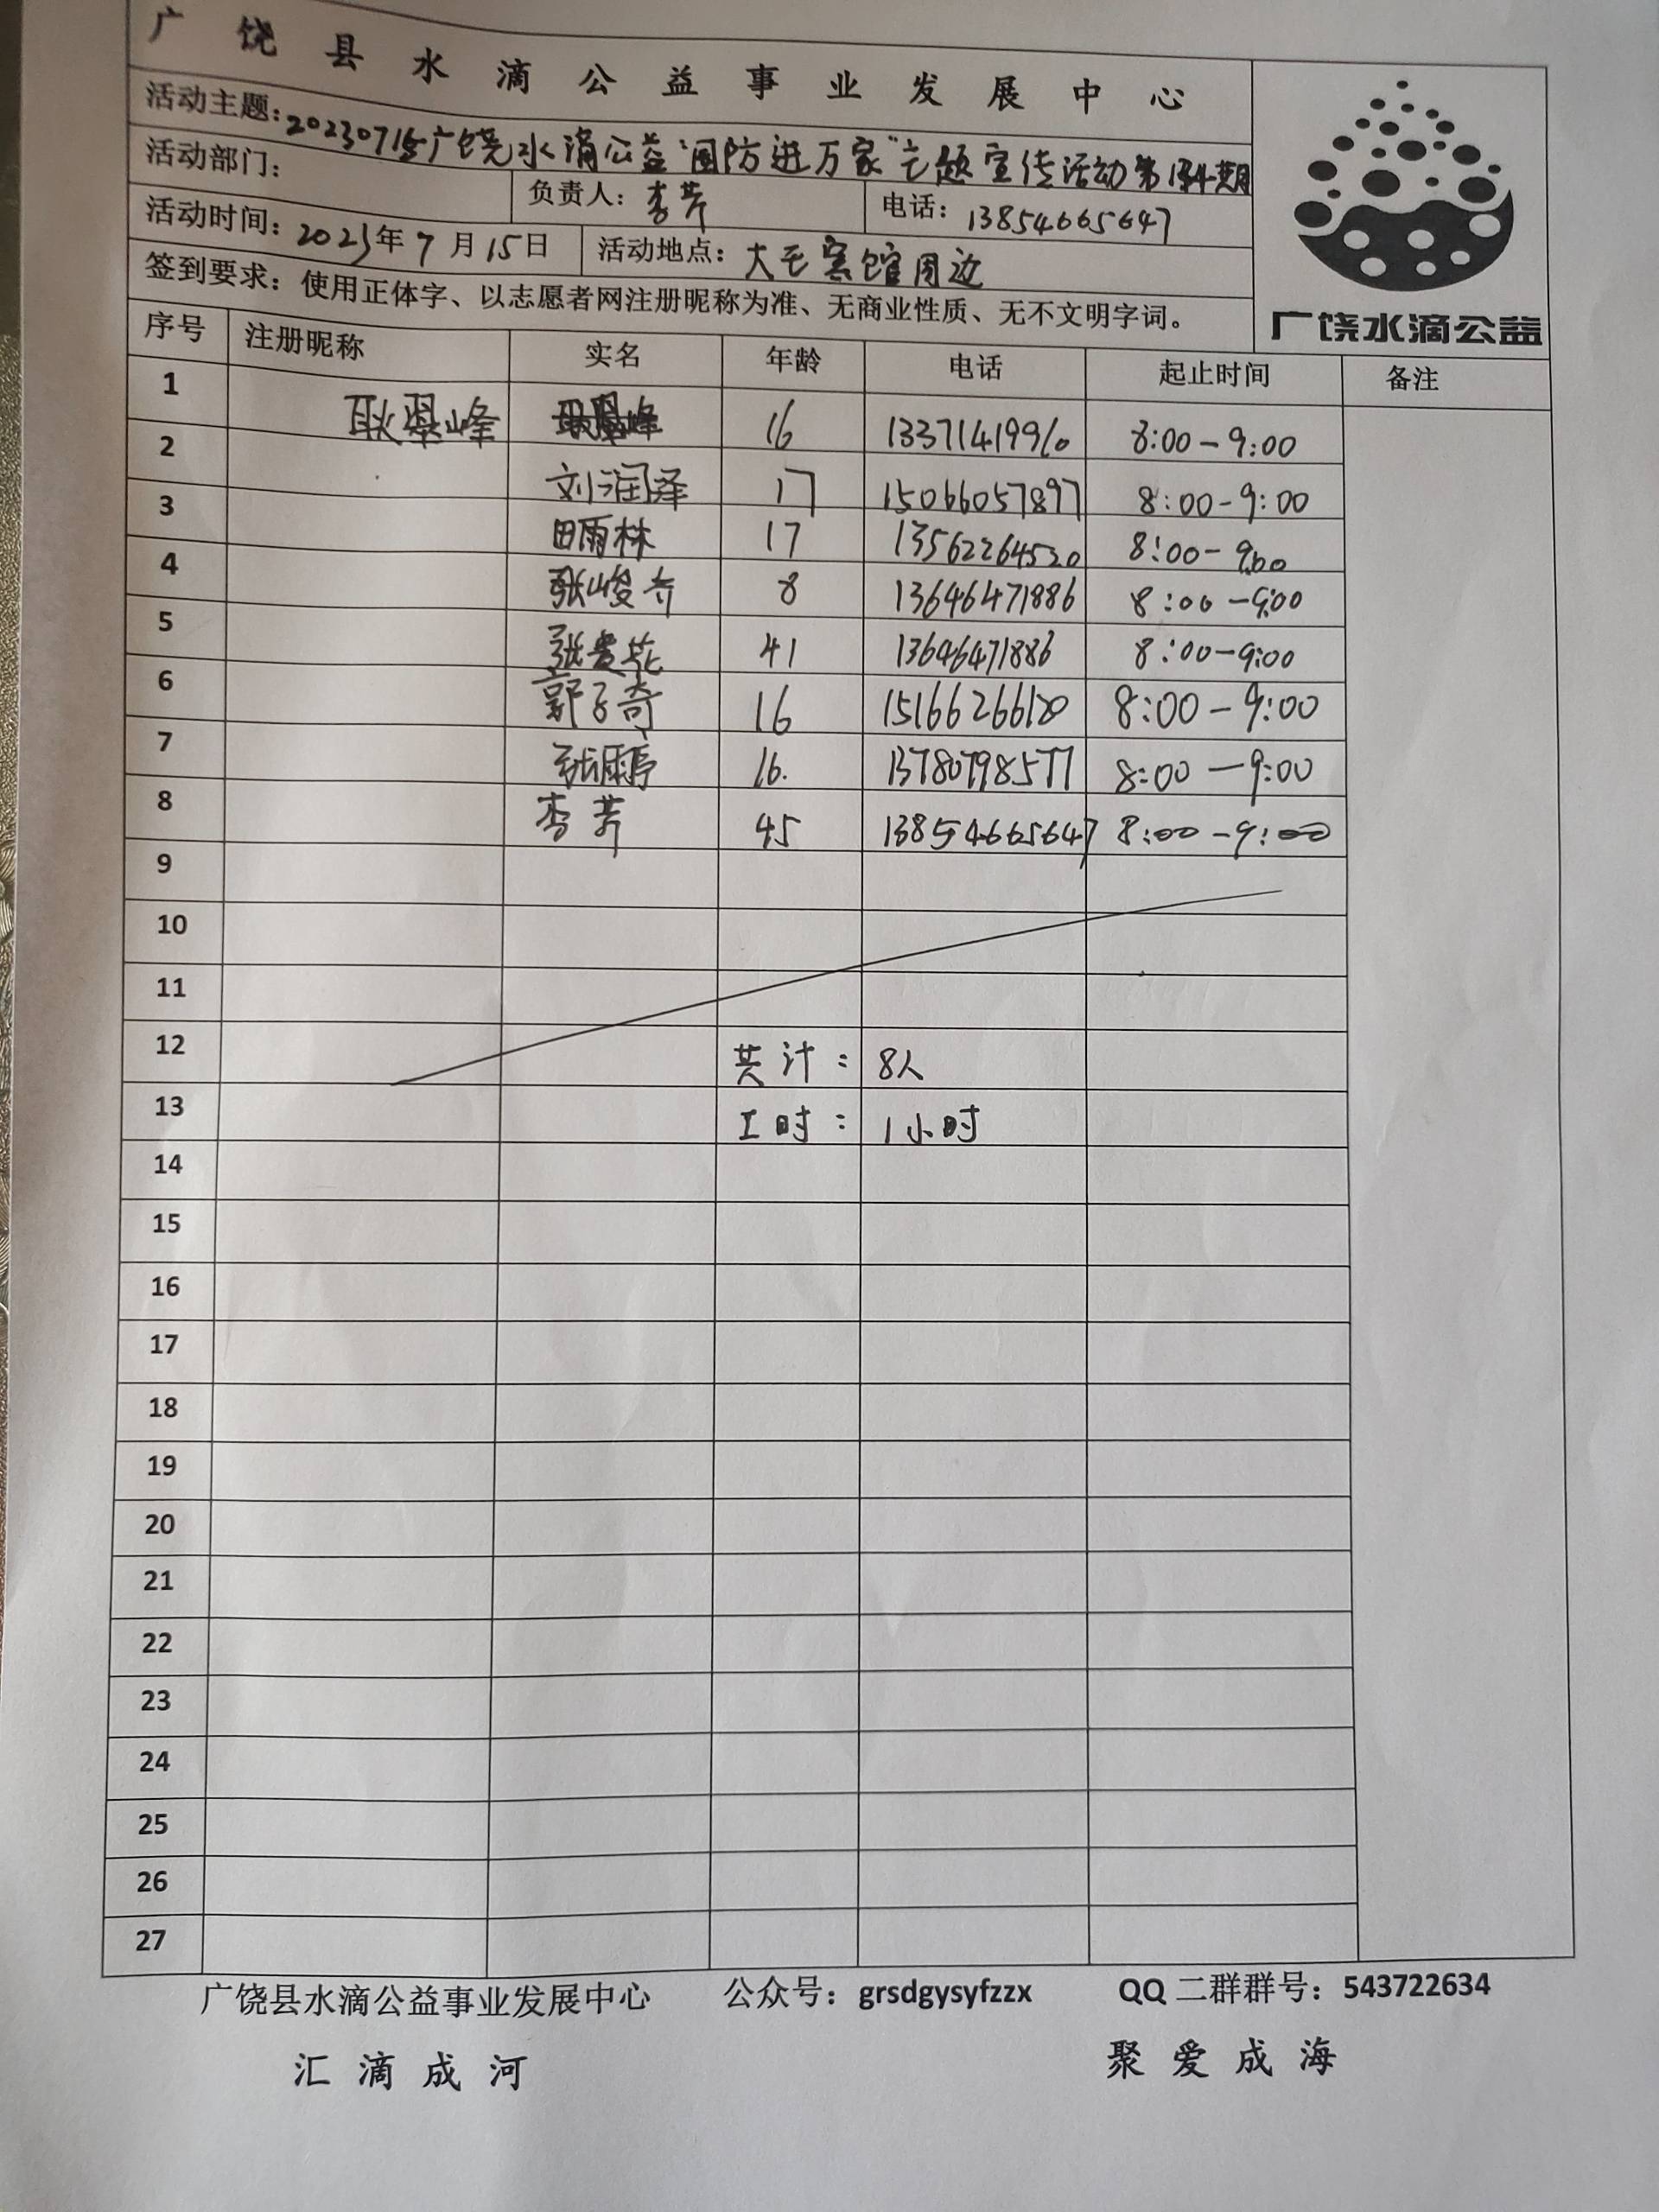 广饶县水滴公益事业发展中心
活动主题：20230715广饶水滴公益“国防进万家”主题宣传活动第 期
活动部门： 负责人：李芳 电话：13854665647
活动时间：2023年7月15日 活动地点：大王宾馆周边
签到要求：使用正体字、以志愿者网注册昵称为准、无商业性质、无不文明字词。
广饶水滴公益
序号 注册昵称 实名 年龄 电话 起止时间 备注
1 耿 峰 16 13371419960 8:00-9:00
2 刘润泽 17 15066057897 8:00-9:00
3 田雨林 17 13562264520 8:00-9:00
4 张峻 8 13646471886 8:00-9:00
5 张贵花 41 13646471886 8:00-9:00
6 郭子奇 16 15166266120 8:00-9:00
7 张雨亭 16. 13780798577 8:00-9:00
8 李芳 45 13854665647 8:00-9:00
9
10
11
12 共计： 8人
13 工时： 1小时
14
15
16
17
18
19
20
21
22
23
24
25
26
27
广饶县水滴公益事业发展中心 公众号：grsdgysyfzzx QQ二群群号：543722634
汇滴成河 聚爱成海